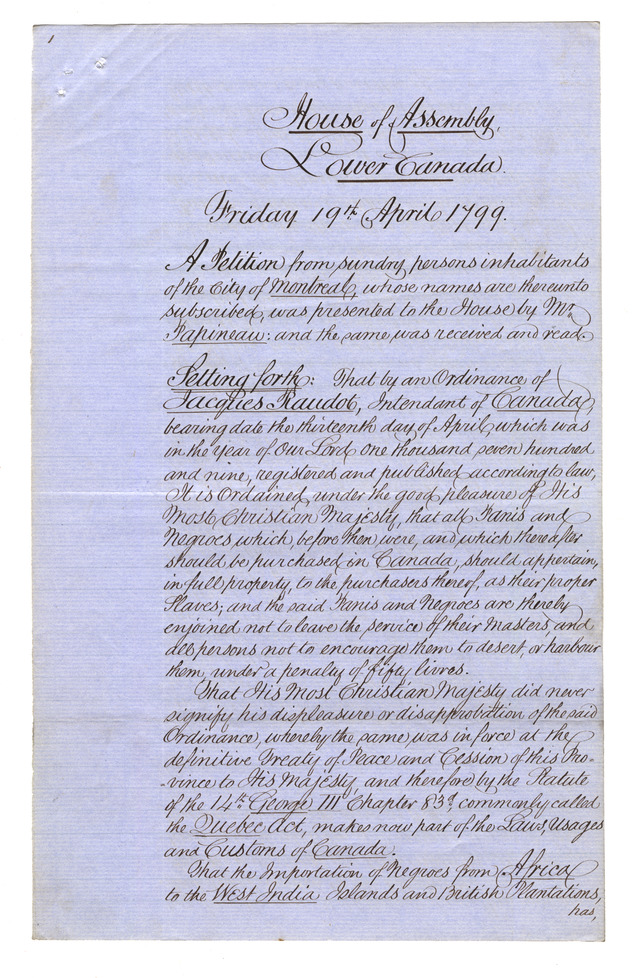 1
House of Assembly,
Lower Canada.
Friday 19th April 1799.
A Petition from sundry persons inhabitants
of the City of Montreal, whose names are thereunto
subscribed, was presented to the House by Mr.
Papineau: and the same was received and read.
Setting forth: That by an Ordinance of
Jacques Raudot, Intendant of Canada,
bearing date the thirteenth day of April, which was
in the Year of Our Lord one thousand seven hundred
and nine, registered and published according to law,
It is Ordained, under the good pleasure of His
Most Christian Majesty, that all Panis and
Negroes which, before then were, and which thereafter
should be purchased in Canada, should appertain,
in full property, to the purchasers thereof, as their proper
Slaves; and the said Panis and Negroes are thereby
enjoined not to leave the service of their Masters, and
all persons not to encourage them to desert, or harbour
them, under a penalty of fifty livres.
That His Most Christian Majesty did never
signify his displeasure or disapprobation of the said
Ordinance, whereby the same was in force at the
definitive Treaty of Peace and Cession of this Pro-
-vince to His Majesty, and therefore by the Statute
of the 14th George III Chapter 83d commonly called
the Quebec Act, makes now part of the Laws, Usages
and Customs of Canada.
That the Importation of Negroes from Africa
to the West India Islands and British Plantations,
has,